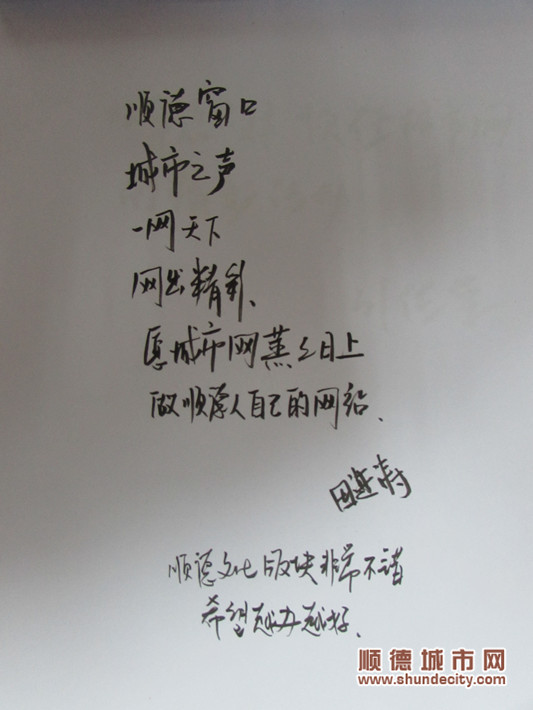 顺德窗口
城市之声
一网天下
网出精彩、
愿城市网蒸々日上
做顺德人自己的网站、
顺德文化版块非常不错
希望越办越好、
顺德城市网
www.shundecity.com